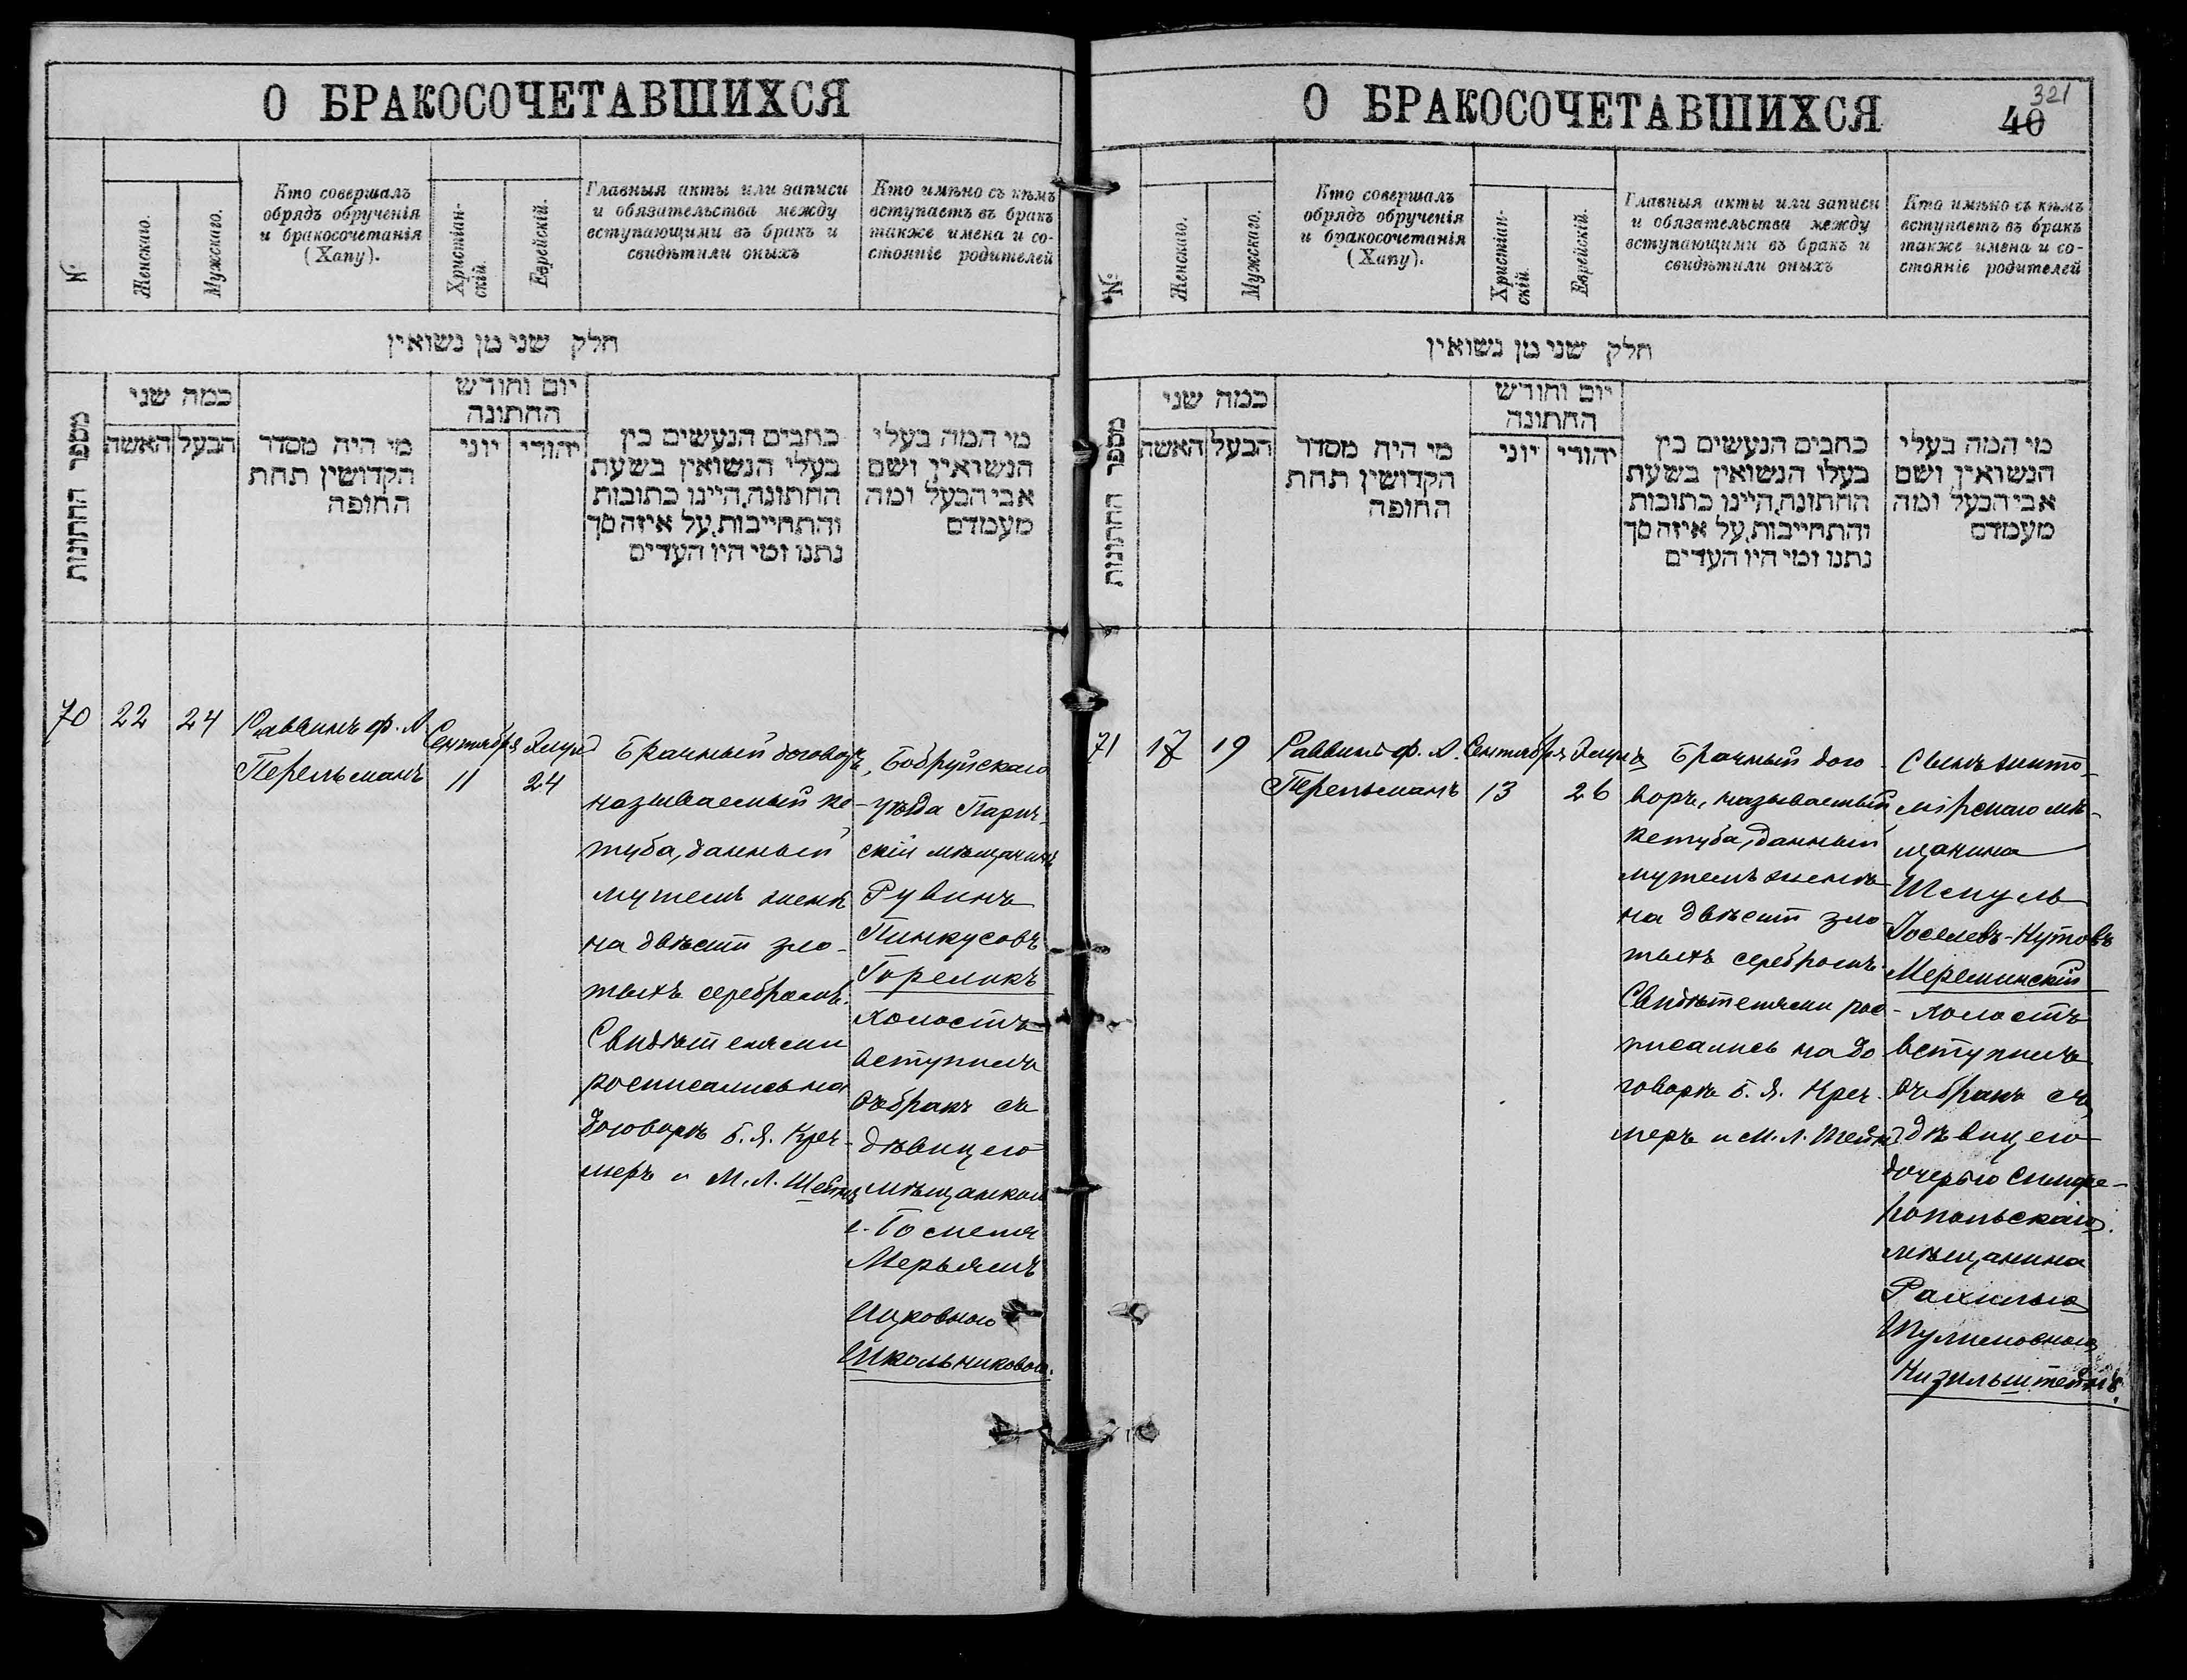 О БРАКОСОЧЕТАВШИХСЯ
№
Женскаго.
Мужскаго.
Кто совершалъ
обрядъ обрученія
и бракосочетанія
(Хапу).
Христіан-
скій.
Еврейскій.
Главныя акты или записи
и обязательства между
вступающими въ бракъ и
свидѣтили оныхъ
Кто имѣно съ кѣмъ
вступаетъ въ бракъ
также имена и со-
стояніе родителей
חלק שני מן נשואין
מספר החתונות
כמה שני
האשה
הבעל
מי היה מסדר
הקדושין תחת
החופה
יום וחודש
החתונה
יוני
יהודי
כתבים הנעשים בין
בעלי הנשואין בשעת
החתונה, היינו כתובות
והתחייבות, על איזה סך
נתנו ומי היו העדים
מי המה בעלי
הנשואין ושם
אבי הבעל ומה
מעמדם
70
22
24
Раввинъ Ф. А.
Перельманъ
Сентября
11
Элулъ
24
Брачный договоръ,
называемый ке-
туба, данный
мужемъ женѣ
на двѣсти зло-
тыхъ серебромъ.
Свидѣтелями
росписались на
договорѣ Б. Я. Креч-
меръ и М. Л. Штейнъ
Бобруйскаго
уѣзда Парич-
скій мѣщанинъ
Рувинъ
Пинкусовъ
Гореликъ
холостъ
вступилъ
въ бракъ съ
дѣвицею
мѣщанкою
г. Гомеля
Мерьямъ
Ицковною
Школьниковою.
О БРАКОСОЧЕТАВШИХСЯ
321
40
№
Женскаго.
Мужскаго.
Кто совершалъ
обрядъ обрученія
и бракосочетанія
(Хапу).
Христіан-
скій.
Еврейскій.
Главныя акты или записи
и обязательства между
вступающими въ бракъ и
свидѣтили оныхъ
Кто имѣно съ кѣмъ
вступаетъ въ бракъ
также имена и со-
стояніе родителей
חלק שני מן נשואין
מספר החתונות
כמה שני
האשה
הבעל
מי היה מסדר
הקדושין תחת
החופה
יום וחודש
החתונה
יוני
יהודי
כתבים הנעשים בין
בעלי הנשואין בשעת
החתונה, היינו כתובות
והתחייבות, על איזה סך
נתנו ומי היו העדים
מי המה בעלי
הנשואין ושם
אבי הבעל ומה
מעמדם
71
17
19
Раввинъ Ф. А.
Перельманъ
Сентября
13
Элулъ
26
Брачный дого-
воръ, называемый
кетуба, данный
мужемъ женѣ
на двѣсти зло-
тыхъ серебромъ.
Свидѣтелями рос-
писались на до-
говорѣ Б. Я. Креч-
меръ и М. Л. Штейнъ
Сынъ жито-
мірскаго мѣ-
щанина
Шмуль
Іоселевъ-Нутовъ
Мереминскій
холостъ
вступилъ
въ бракъ съ
дѣвицею
дочерью симфе-
ропольскаго
мѣщанина
Рахилью
Шулимовною
Кизильштейнъ.